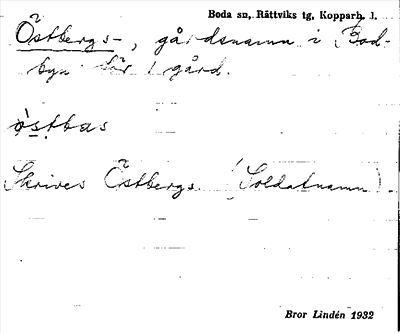 Boda sn, Rättviks tg, Kopparb. l.
Östbergs-, gårdsnamn i Bod-
byn för 1 gård.
östbas
Skrives Östbergs. (Soldatnamn).
Bror Lindén 1932